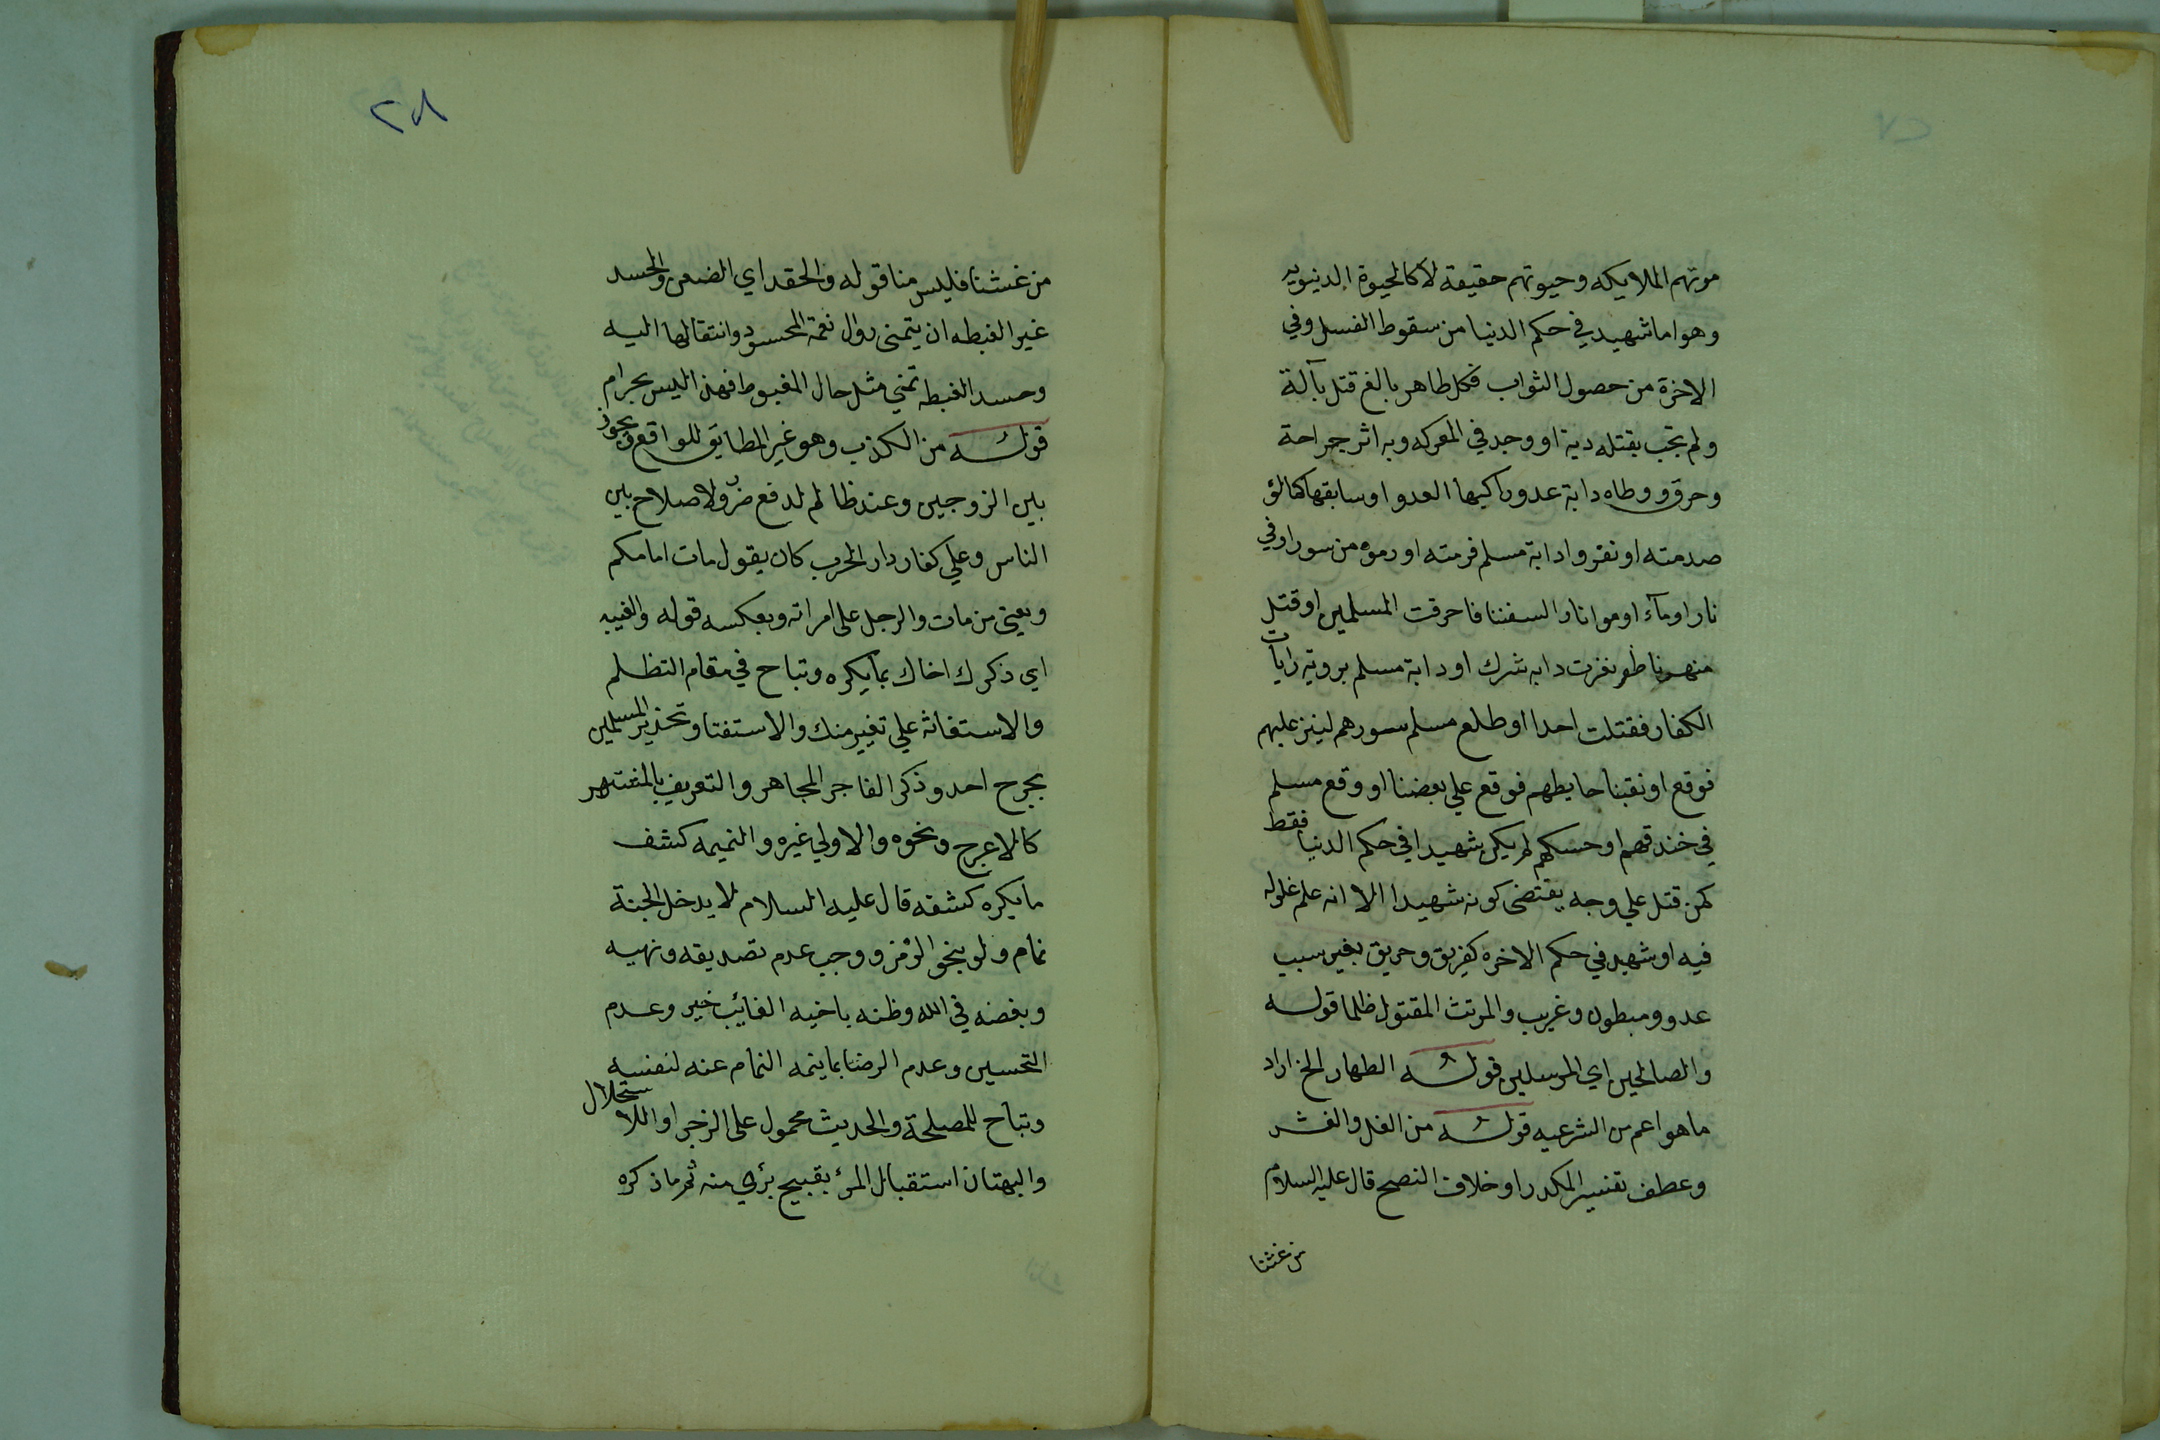 موتهم الملايكه وحيوتهم حقيقة لا كالحيوة الدنيويه
وهو اما شهيد في حكم الدنيا من سقوط الغسل وفي
الاخرة من حصول الثواب فكل طاهر بالغ قتل بآلة
ولم تجب بقتله دية او وجد في المعركه وبه اثر جراحة
وحرق ووطاه دابة عدو راكبها العدو او سابقها كما لو
صدمته او نفروا دابة مسلم فرمته او رموه من سور او في
نار او مآء او رموا نارا لسفننا فاحرقت المسلمين او قتل
نفرت دابه شرك او دابة مسلم بروية رايات
الكفار فقتلت احدا او طلع مسلم سورهم لينزعليهم
فوقع او نقبنا حايطهم فوقع علي بعضنا او وقع مسلم
في خندقهم او حسكهم لم يكن شهيدا في حكم الدنيا فقط
كمن قتل علي وجه يقتضى كونه شهيدا الا انه علم غلوله
فيه او شهيد في حكم الاخرة كغريق وحريق بغير سبب
عدو ومبطون وغريب والمرتث المقتول ظلما قوله
والصالحين اي المرسلين قوله الطهار الخ اراد
ما هو اعم من الشرعيه قوله من الغل والغش
وعطف تفسير المكدر او خلاف النصح قال عليه السلام
من غشنا
٢٨
من غشنا فليس منا قوله والحقد اي الضغن والحسد
غير الغبطه ان يتمنى زوال نعمة المحسود وانتقالها اليه
وحسد الغبطه تمني مثل حال المغبوط فهذا ليس بحرام
قوله من الكذب وهو غير المطابق للواقع ويجوز
بين الزوجين وعند ظالم لدفع ضرر ولاصلاح بين
الناس وعلي كفار دار الحرب كان يقول مات امامكم
ويعني من مات والرجل على امراته وبعكسه قوله والغيبه
اي ذكرك اخاك بما يكره وتباح في مقام التظلم
والاستغاثه علي تغيير منك والاستفتا وتحذير المسلمين
بجرح احد وذكر الفاجر المجاهر والتعريف بالمشتهر
كالاعرج ونحوه والاولي غيره والنميمه كشف
ما يكره كشفه قال عليه السلام لا يدخل الجنة
نمام ولو بنحو الرمز ووجب عدم تصديقه ونهيه
وبغضه في الله وظنه باخيه الغايب خير وعدم
التحسين وعدم الرضا بما ينمه النمام عنه لنفسه
وتباح للمصلحة والحديث محمول على الزجر او اللاستحلال
والبهتان استقبال المرئ بقبيح برئ منه ثم ما ذكره